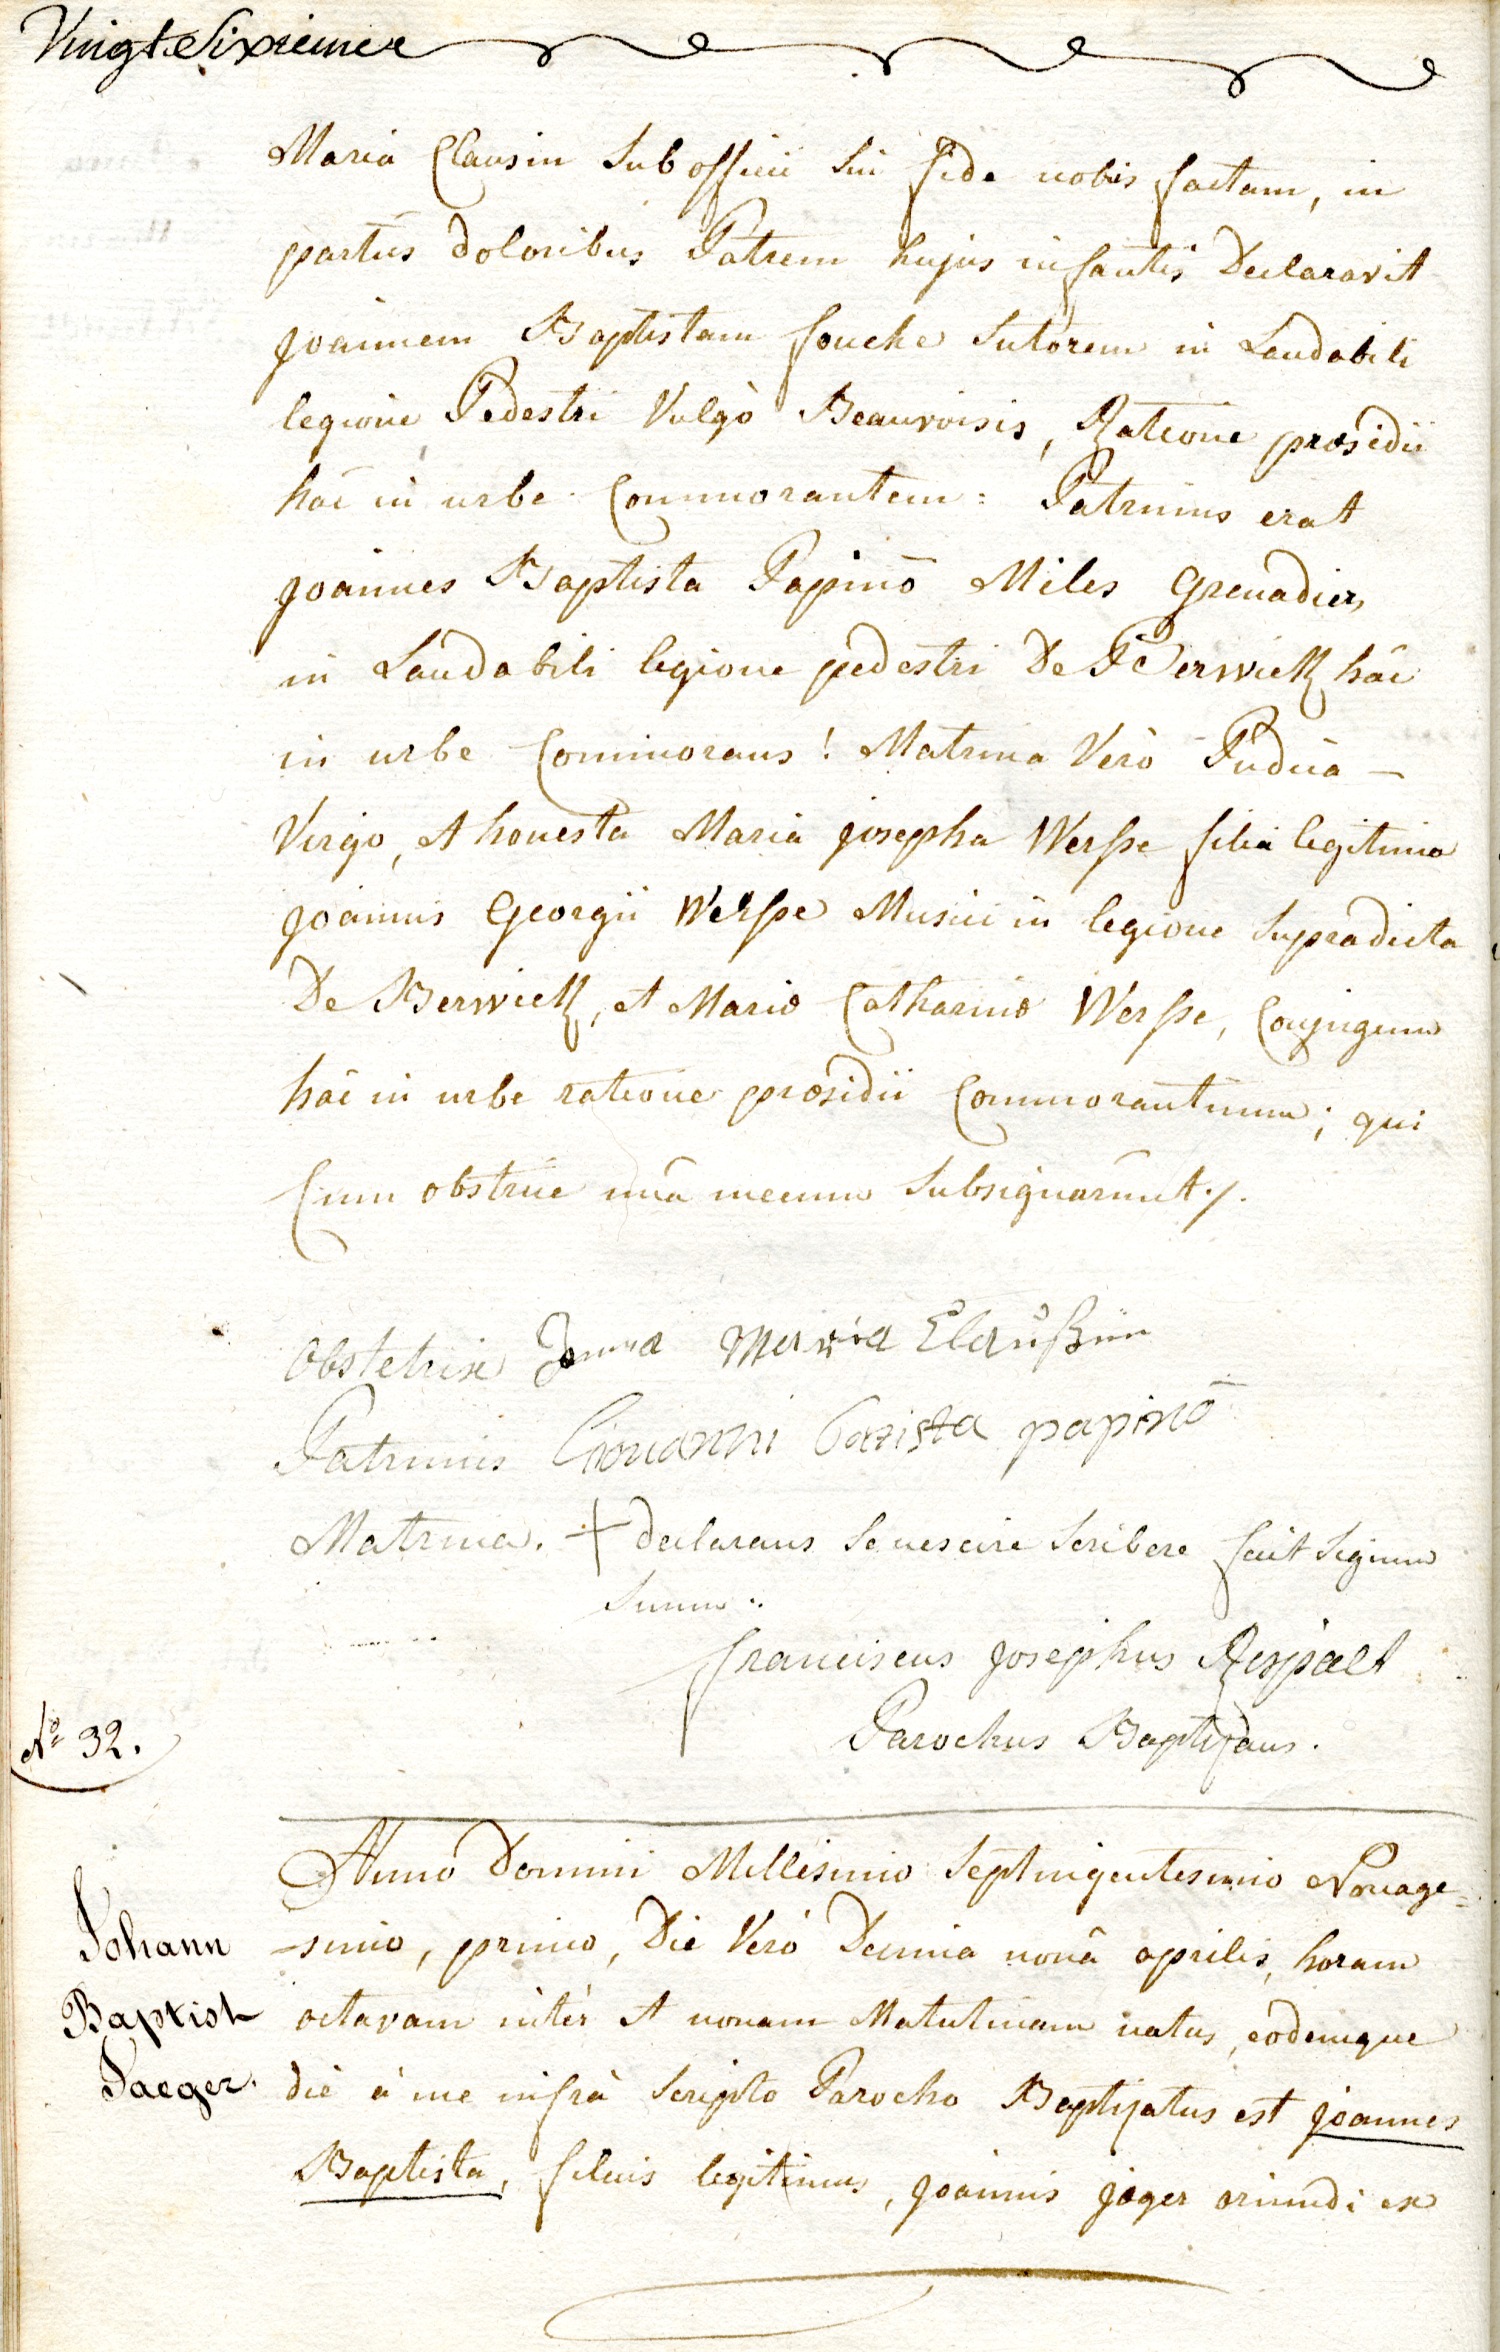 Vingt Sixieme
Maria Clausin Sub officii Sui fide nobis factam, in
partus doloribus Patrem hujus infantis Declaravit
joannem Baptistam fouche Sutorem in Laudabili
legione Pedestri Vulgò Beauvoisis, Ratione præsidii
hâc in urbe Commorantem: Patrinus erat
joannes Baptista Papinò Miles Grenadier,
in Laudabili legione pedestri De Berwick hâc
in urbe Commorans! Matrina Verò Pudica –
Virgo, et honesta Maria josepha Wersse filia legitima
joannis Georgii Wersse Musici in legione Supradicta
De Berwick, et Mariæ Catharinæ Wersse, Conjugum
hâc in urbe ratione præsidii Commorantium; qui
Cum obstrice unâ mecum Subsignarunt./.
Obstetrix Maria Claußin
Patrinus Giovanni Batista papinō
Matrina. + declarans Se nescire Scribere fecit Signum
Suum ..
franciscus josephus Respect
Parochus Baptisans.
No 32.
Johann
Baptist
Jaeger.
Anno Domini Millesimo Septingentesimo Nonage=
-simo, primo, Die Verò Decima nonâ aprilis, horam
octavam inter et nonam Matutinam natus, eodemque
die à me infrà Scripto Parocho Baptisatus est joannes
Baptista, filius legitimus, joannis jæger oriundi ex